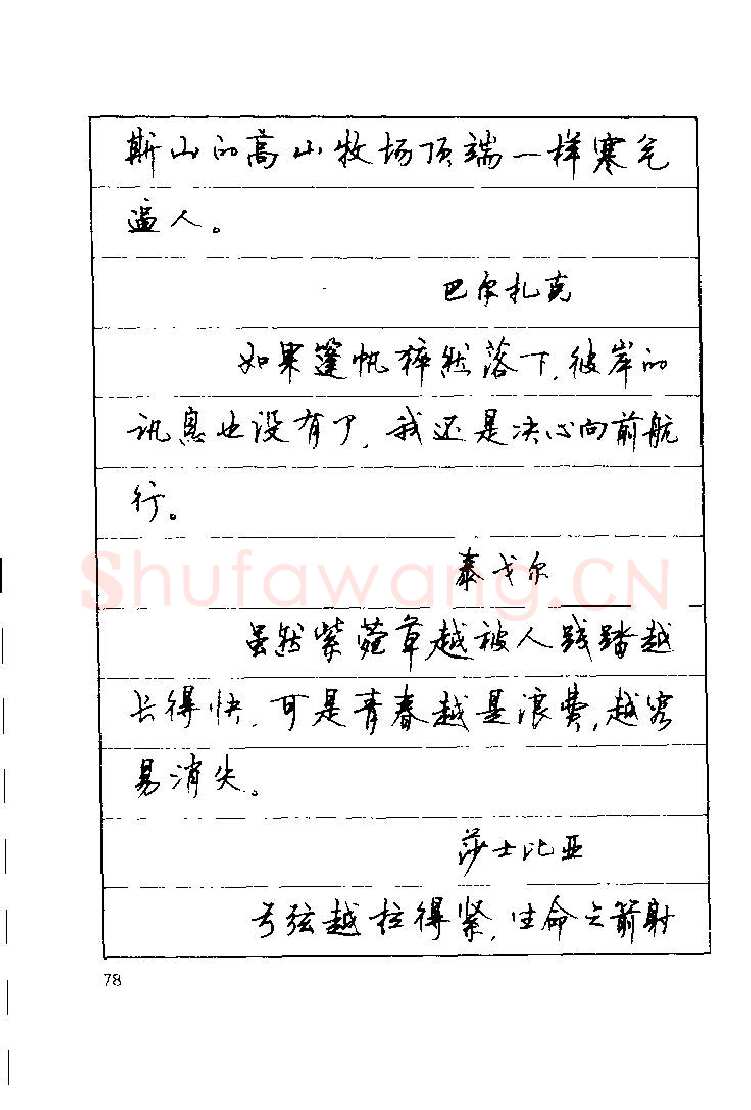 斯山的高山牧场顶端一样寒气
逼人。
巴尔扎克
如果篷帆猝然落下,彼岸的
讯息也没有了,我还是决心向前航
行。
泰戈尔
Shufawang.CN
虽然紫菀草越被人践踏越
长得快,可是青春越是浪费,越容
易消失。
莎士比亚
弓弦越拉得紧,生命之箭射
78